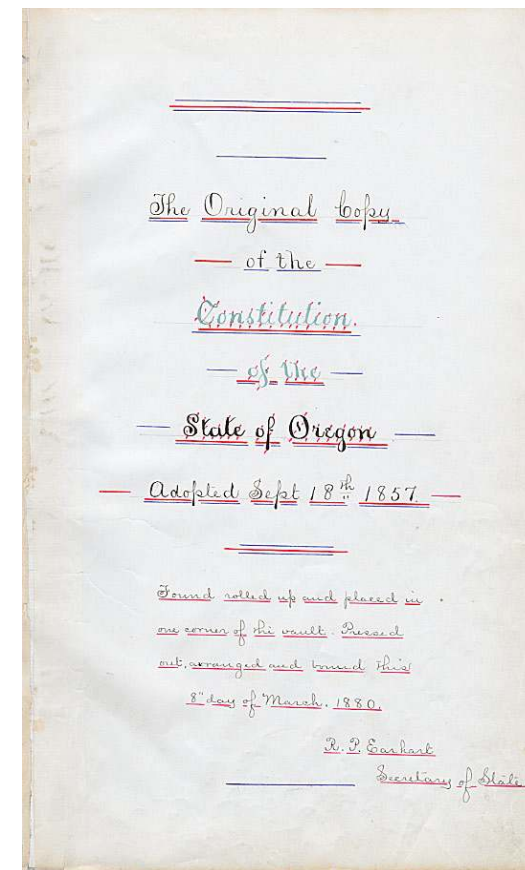 The Original Copy
of the
Constitution.
of the
State of Oregon
Adopted Sept 18th 1857.
Found rolled up and placed in
one corner of the vault. Pressed
out, arranged and bound this
8" day of March. 1880.
R. P. Earhart
Secretary of State